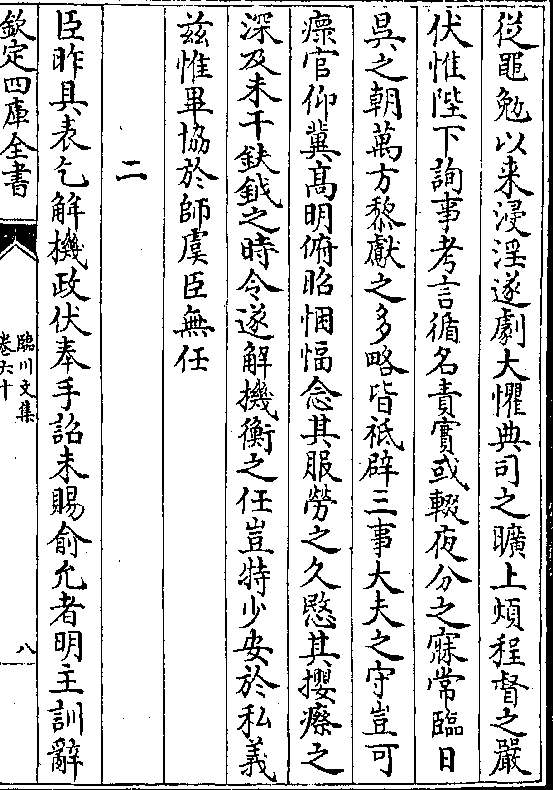 從黽勉以来浸淫遂劇大懼典司之曠上煩程督之嚴
伏惟陛下詢事考言循名責實或輟夜分之寐常臨日
昃之朝萬方黎獻之多略皆祗辟三事大夫之守豈可
瘝官仰兾髙明俯昭悃愊念其服勞之久愍其攖瘵之
深及未干鈇鉞之時令遂解機衡之任豈特少安於私義
兹惟畢協於師虞臣無任
二
臣昨具表乞解機政伏奉手詔未賜俞允者明主訓辭
欽定四庫全書
臨川文集
卷六十
八